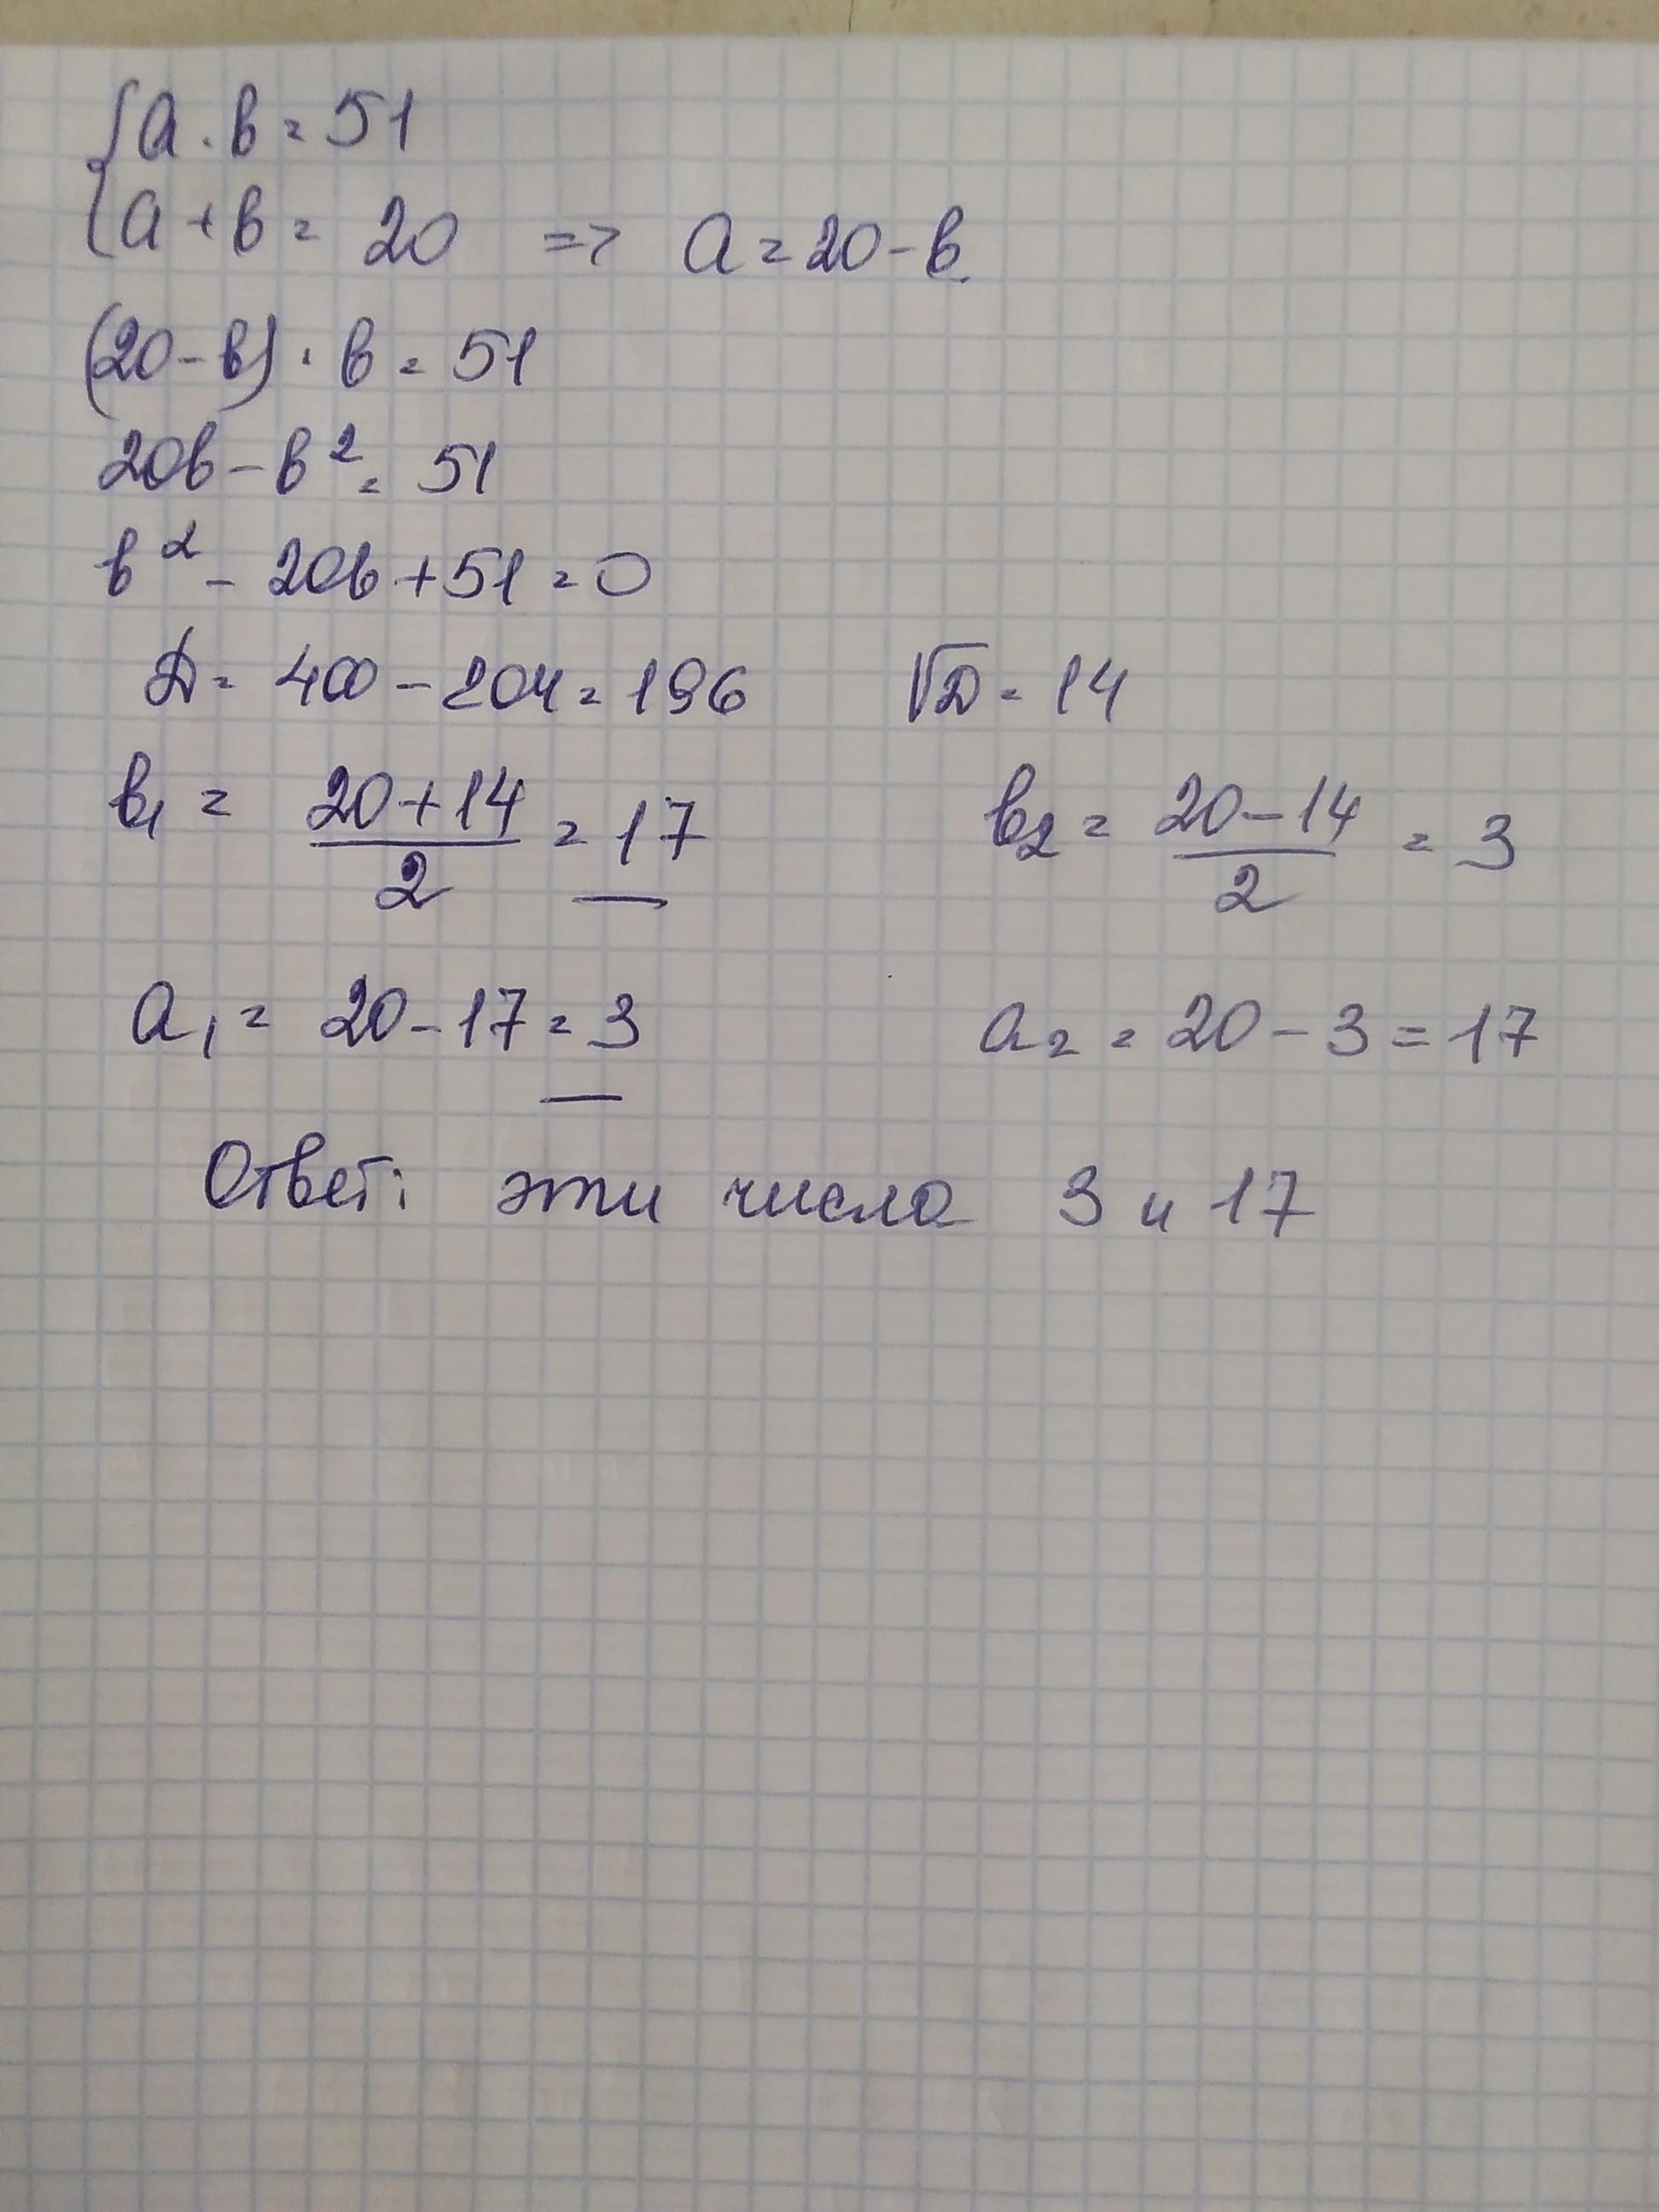 {a · в = 51
{a + в = 20 => a = 20 - в
(20 - в) · в = 51
20в - в² = 51
в² - 20в + 51 = 0
D = 400 - 204 = 196 √D = 14
в₁ = (20 + 14)/2 = 17 в₂ = (20 - 14)/2 = 3
a₁ = 20 - 17 = 3 a₂ = 20 - 3 = 17
Ответ: эти числа 3 и 17